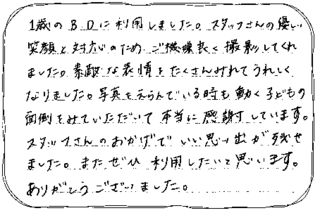 1歳のBDに利用しました。スタッフさんの優しい
笑顔と対応のため、ご機嫌良く撮影してくれ
ました。素敵な表情をたくさんみれてうれしく
なりました。写真をえらんでいる時も動く子どもの
面倒をみていただいて本当に感謝しています。
スタッフさんのおかげでいい思い出が残せ
ました。またぜひ利用したいと思います。
ありがとうございました。